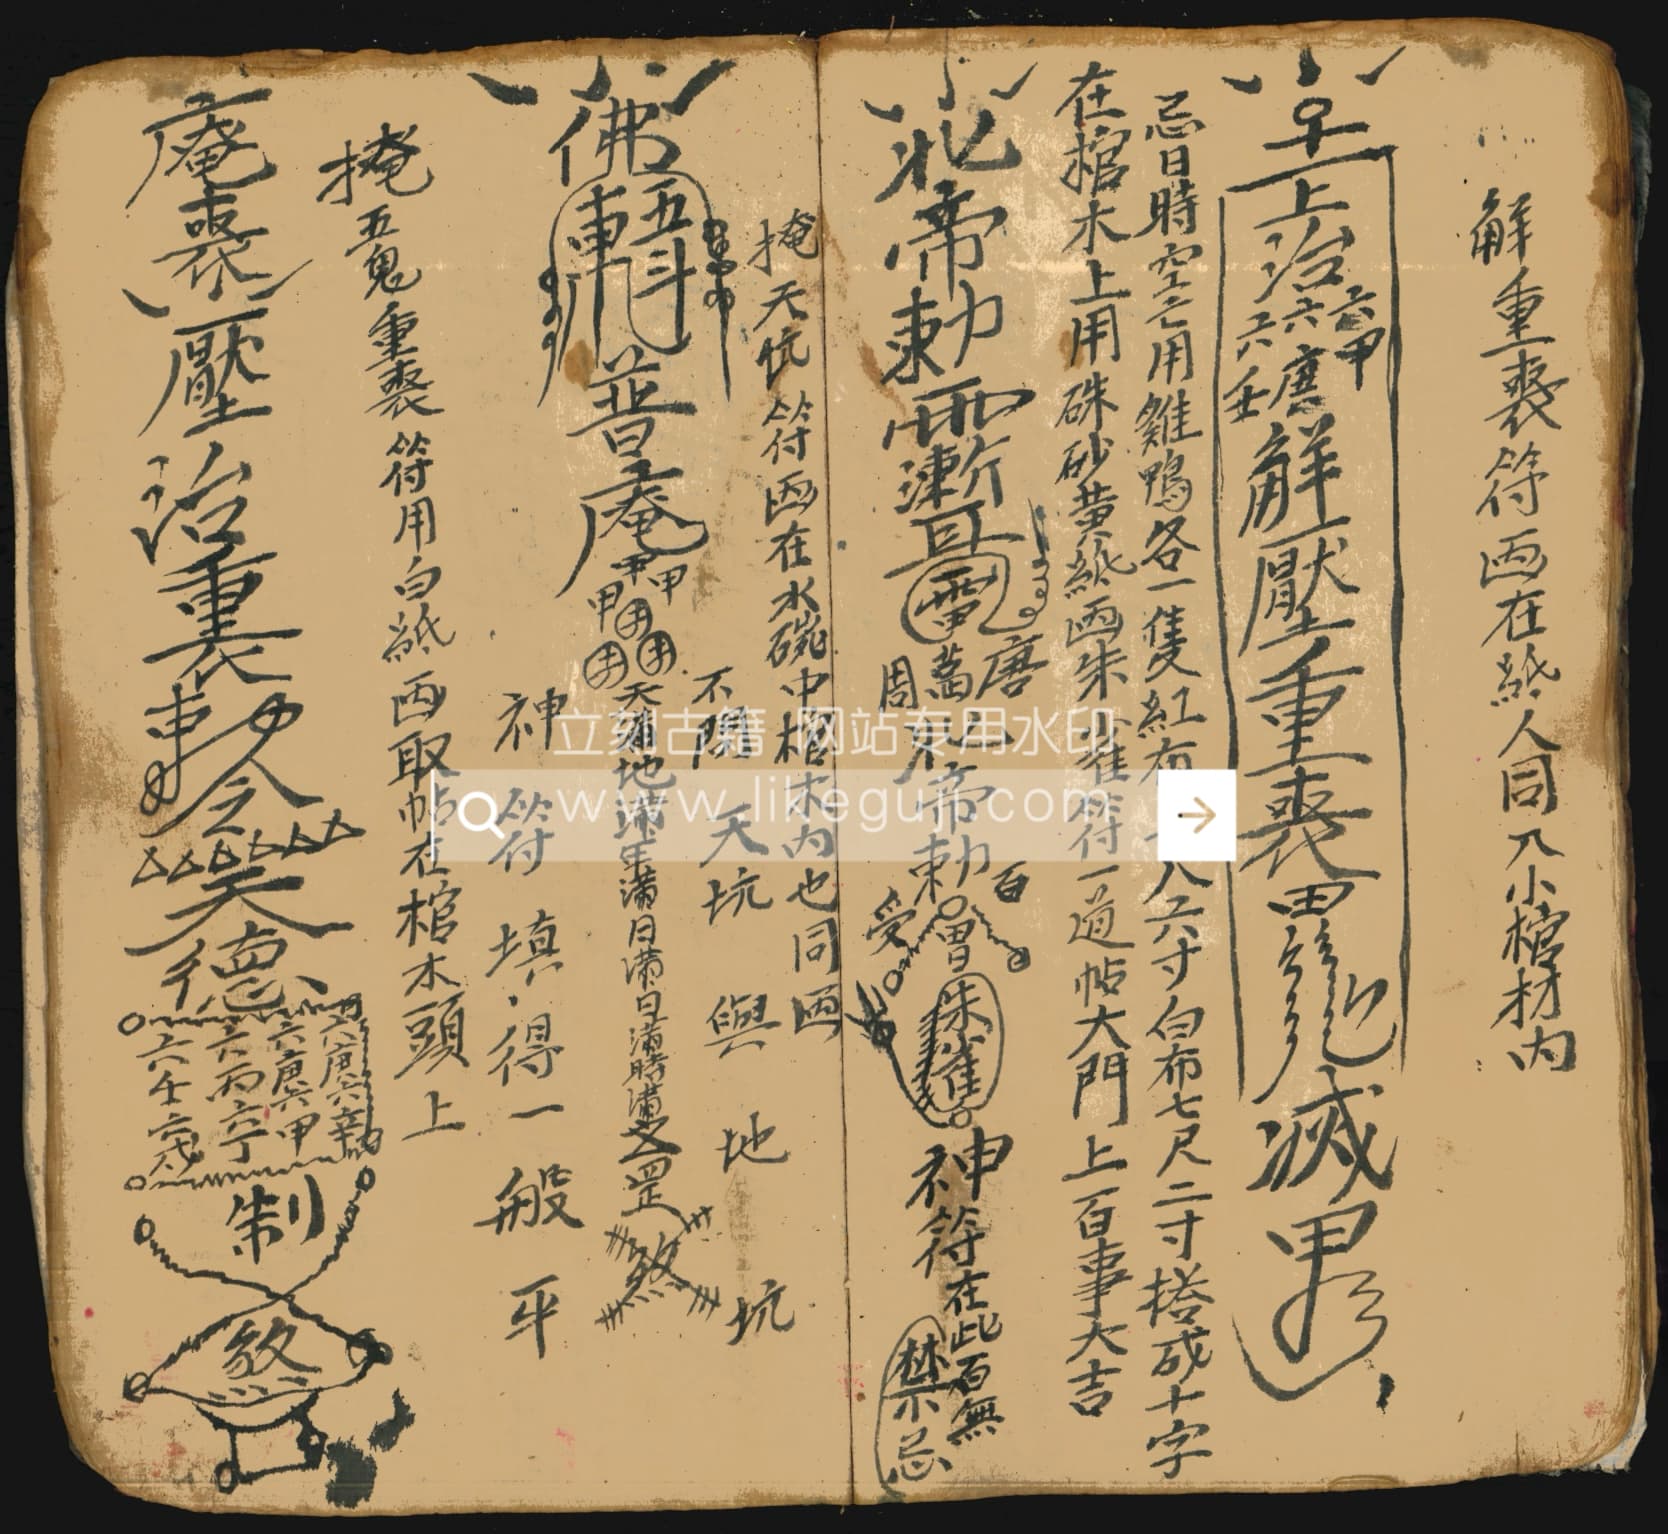 解重喪符画在紙人同入小棺材内
上治六甲六庚六壬解壓重喪
滅
忌日時空亡用雞鴨各一隻紅布一丈六寸白布七尺二寸搭成十字
在棺木上用硃砂黄紙画朱雀符一道帖大門上百事大吉
北帝勅
雷
唐葛周
北帝勅
朱雀
神符在此百無禁忌
掩天坑符画在水碗中棺木内也同画
不關天坑與地坑
佛
普庵
天 地 年滿月滿日滿時滿之罡
煞
神符填得一般平
掩五鬼重喪符用白紙画取帖在棺木頭上
庵喪壓治重喪
天德
六庚六甲
六丙六丁
六壬六戊
制
煞
立刻古籍 网站专用水印
www.likeguji.com